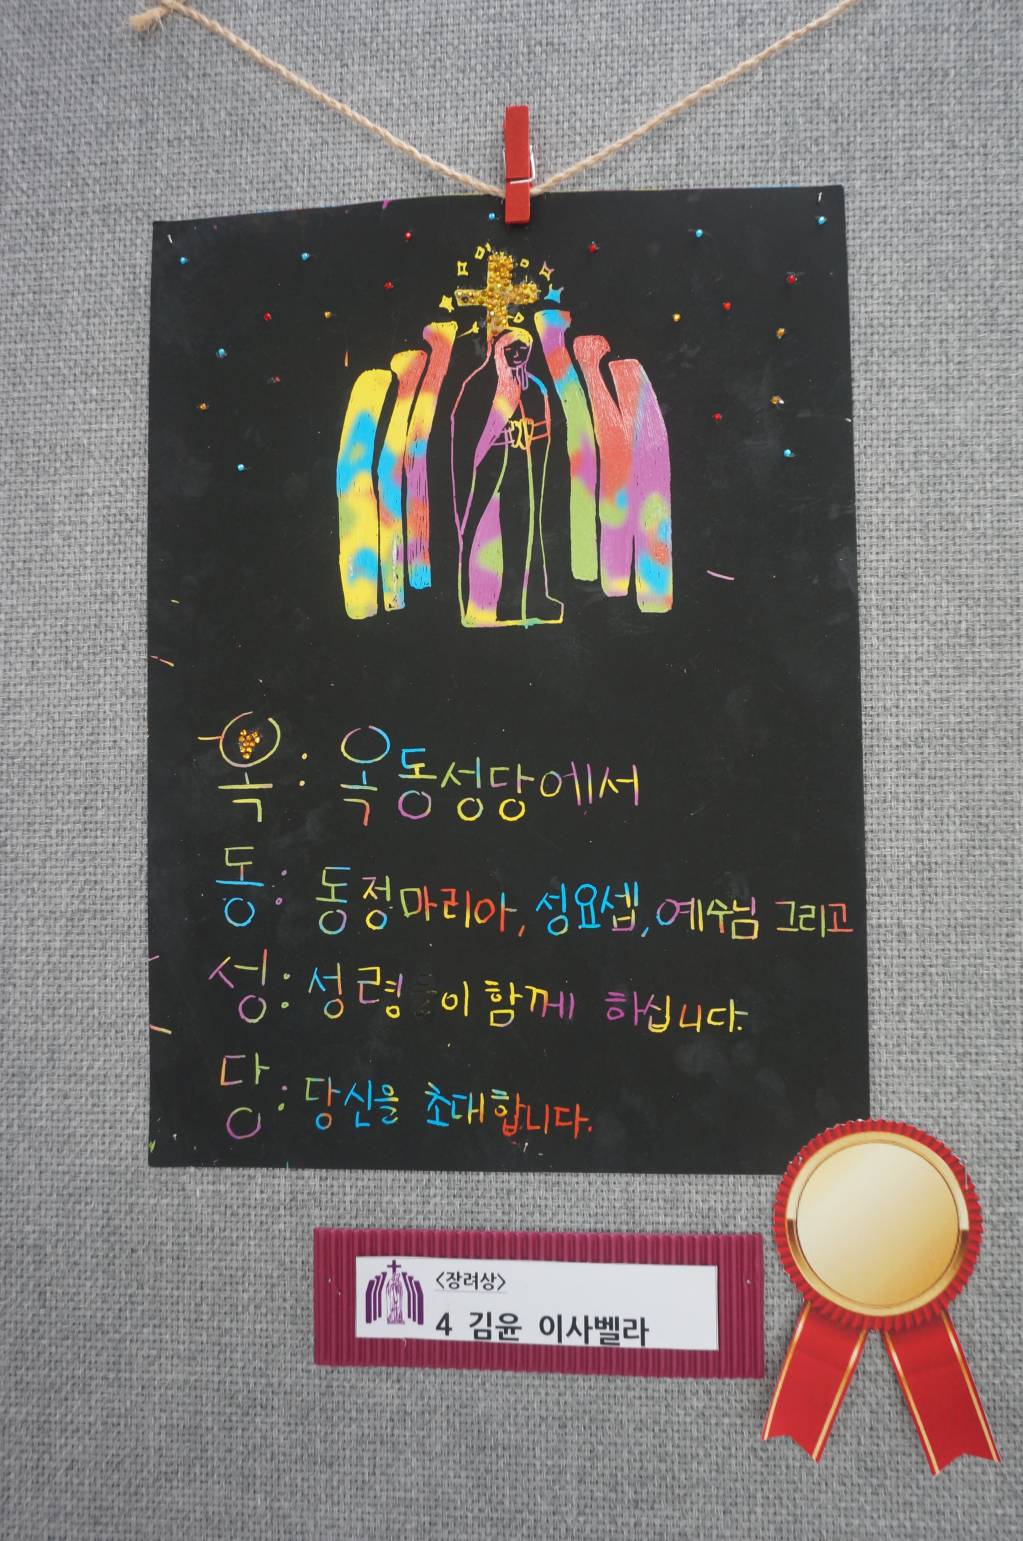 옥: 옥동성당에서
동: 동정마리아, 성요셉, 예수님 그리고
성: 성령 이 함께 하십니다.
당: 당신을 초대합니다.
<장려상>
4 김윤 이사벨라